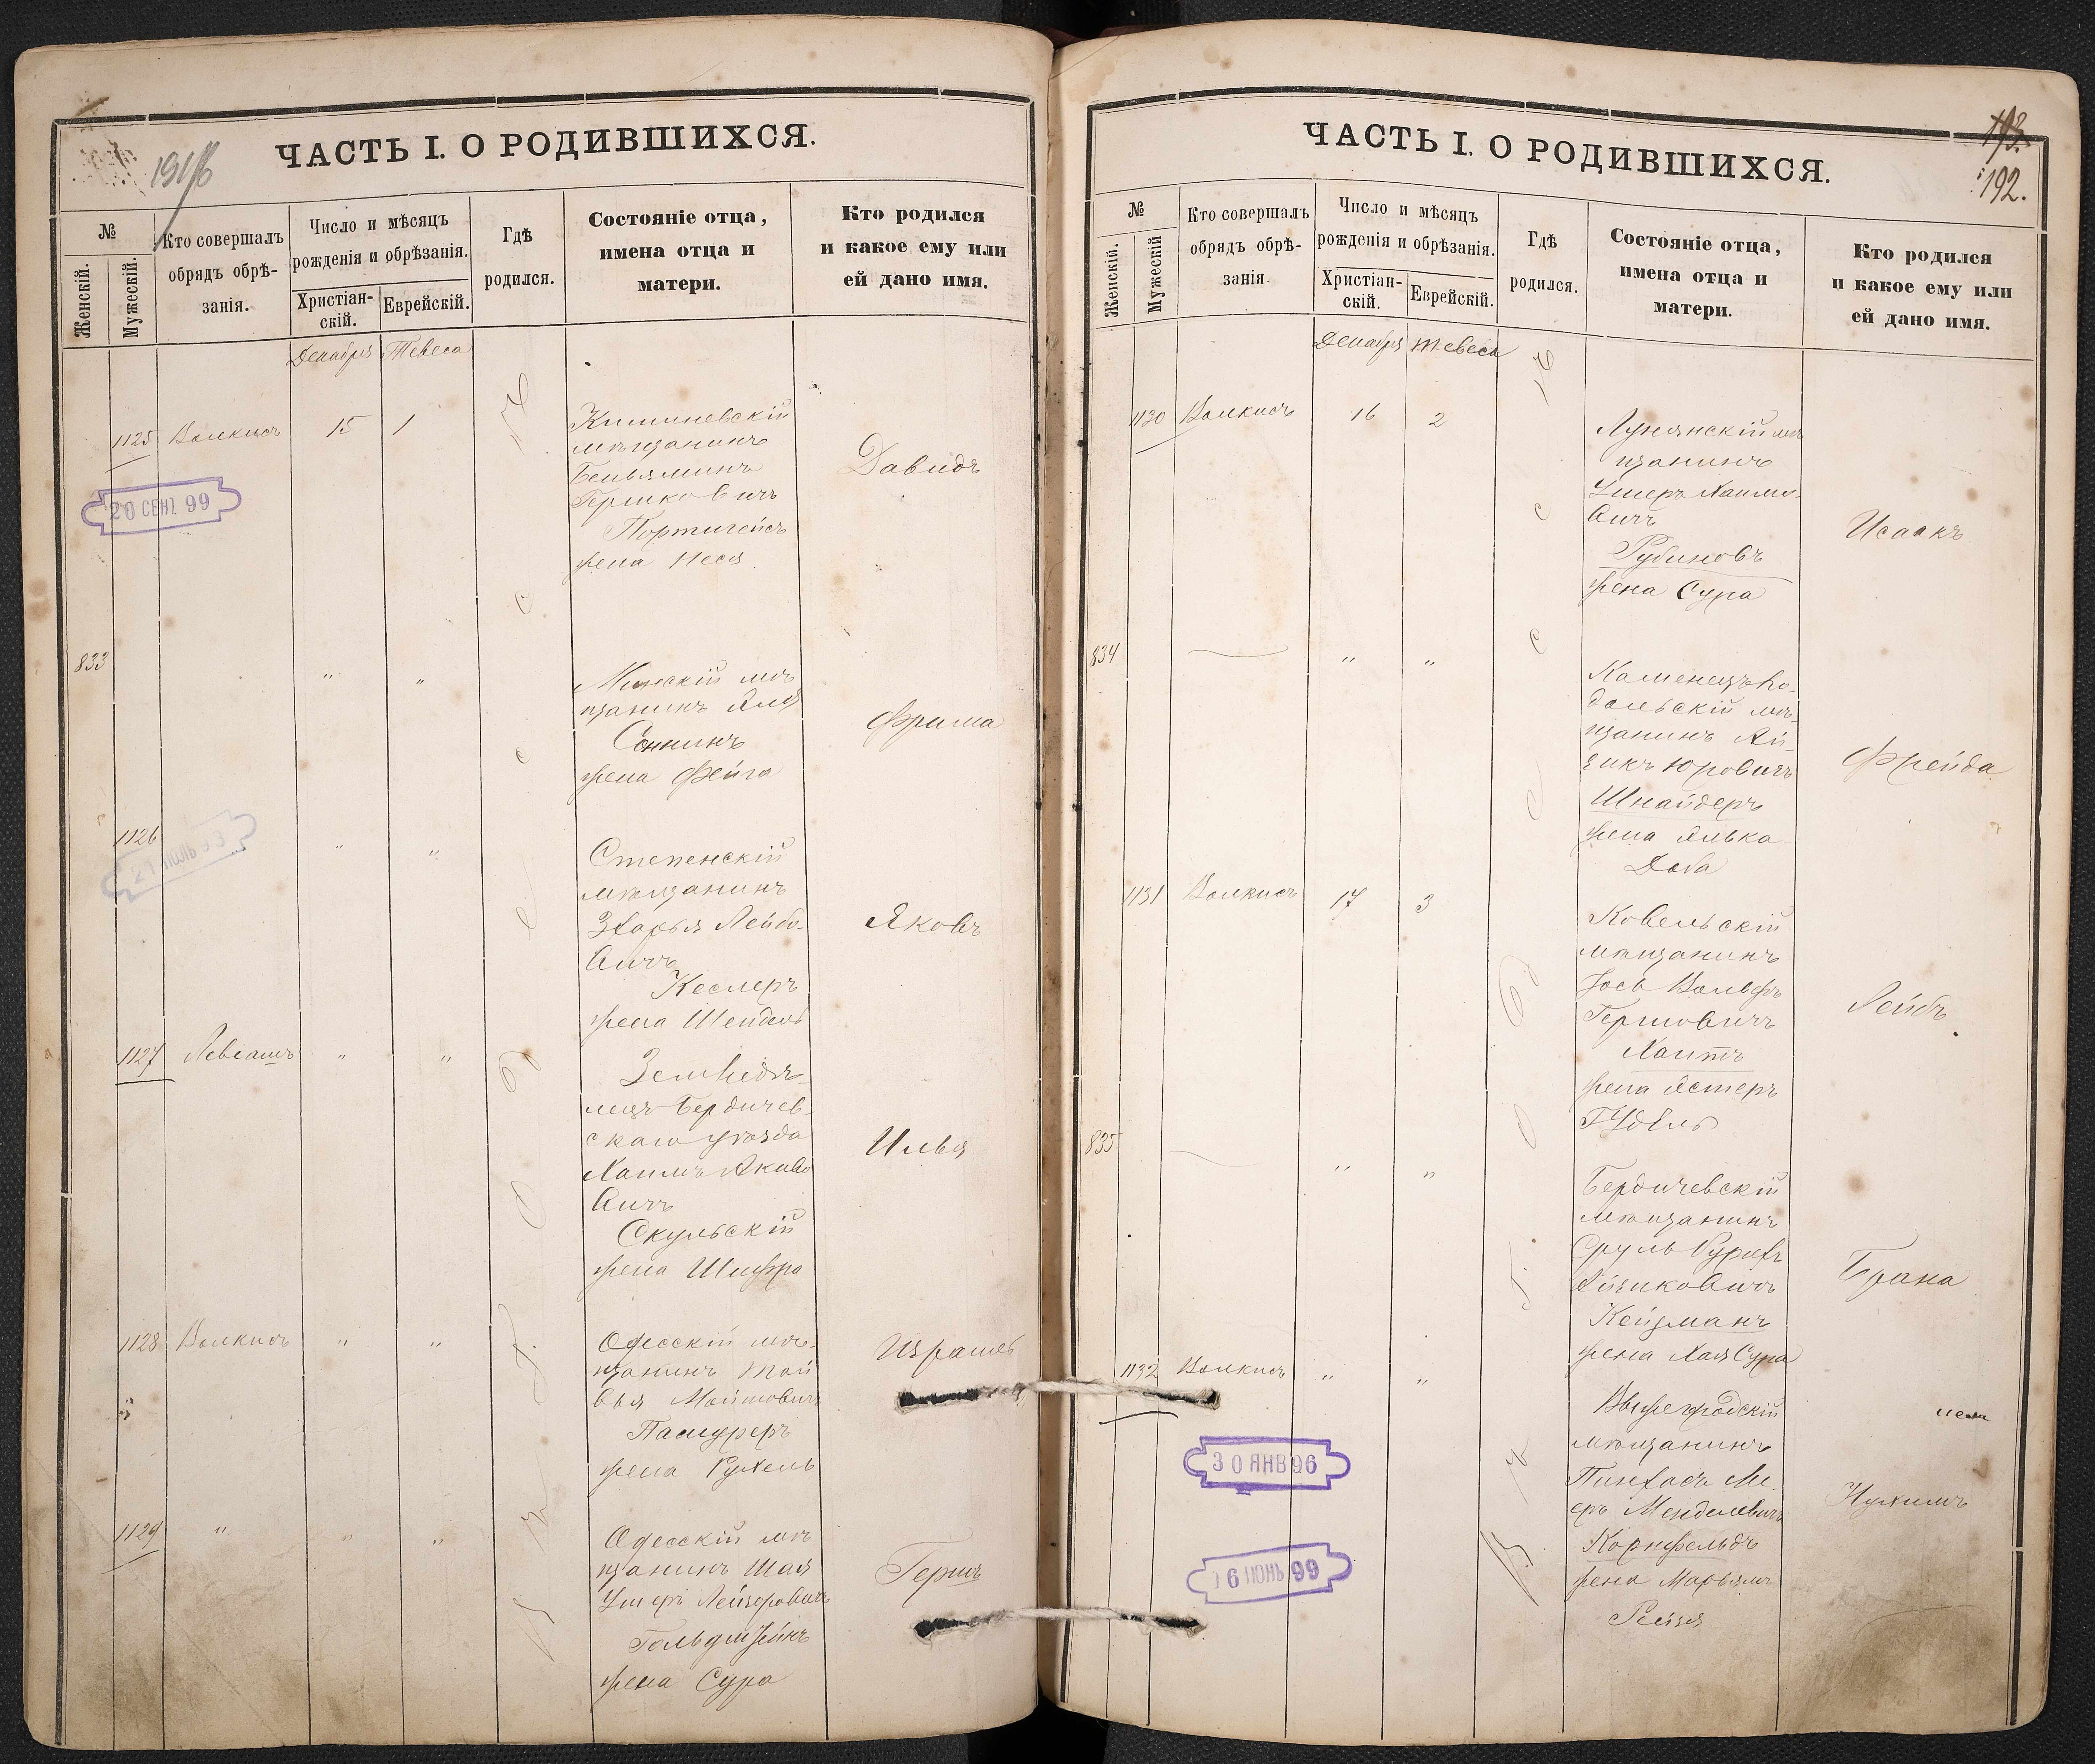 191/б
ЧАСТЬ I. О РОДИВШИХСЯ.
№
Женскій.
Мужескій.
Кто совершалъ
обрядъ обрѣ-
занія.
Число и мѣсяцъ
рожденія и обрѣзанія.
Христіан-
скій.
Еврейскій.
Гдѣ
родился.
Состояніе отца,
имена отца и
матери.
Кто родился
и какое ему или
ей дано имя.
Декабря
Тевеса
1125
Волкисъ
15
1
Кишиневскій
мѣщанинъ
Беньяминъ
Гершковичъ
Портигейсъ
жена Неся
Давидъ
20 СЕНТ. 99
833
"
"
Минскій мѣ
щанинъ
Соннинъ
жена Фейга
Фрима
1126
"
"
Степенскій
мѣщанинъ
Зхарья Лейбо-
вичъ
Кеслеръ
жена Шейдель
Яковъ
1127
Левіашъ
"
"
Землѣдѣ-
лецъ Бердичев
скаго уѣзда
Хаимъ Якаво
вичъ
Скульскій
жена Шифра
Илья
1128
Волкисъ
"
"
Одесскій мѣ-
щанинъ Той
вья
жена Рухель
Израиль
1129
"
"
"
Одесскій мѣ
щанинъ Шая
Ушеръ Лейзеровичъ
Гольдштейнъ
жена Сура
Гершъ
193.
192.
ЧАСТЬ I. О РОДИВШИХСЯ.
№
Женскій.
Мужескій
Кто совершалъ
обрядъ обрѣ-
занія.
Число и мѣсяцъ
рожденія и обрѣзанія.
Христіан-
скій.
Еврейскій.
Гдѣ
родился.
Состояніе отца,
имена отца и
матери.
Кто родился
и какое ему или
ей дано имя.
Декабря
Тевеса
1130
Волкисъ
16
2
мѣ
щанинъ
Ушеръ Хаимо-
вичъ
Рубиновъ
жена Сура
Исаакъ
834
"
"
Каменецъ-По-
дольскій мѣ-
щанинъ Ай-
зикъ Юровичъ
Шнайдеръ
жена Элька
Доба
Фрейда
1131
Волкисъ
17
3
Ковельскій
мѣщанинъ
Іось Вольфъ
Гершовичъ
Хаитъ
жена Эстеръ
Гудель
Лейбъ
835
"
"
Бердичевскій
мѣщанинъ
Сруль
Айзиковичъ
Кейзманъ
жена Хая Сура
Брана
1132
Волкисъ
"
"
мѣщанинъ
Пинхасъ Ме-
еръ Менделевичъ
Корнфельдъ
жена Марьямъ
Рейзя
Нухимъ
30 ЯНВ 96
6 ІЮНЬ 99